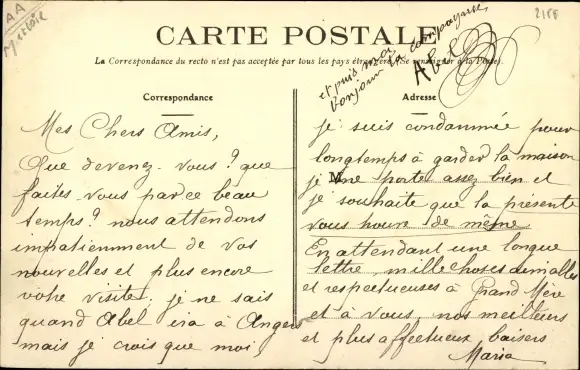 AA
2188
et puis moi
bonjour la compagnie,
Abel
CARTE POSTALE
La Correspondance du recto n'est pas acceptée par tous les pays étrangers (Se renseigner à la Poste).
Correspondance
Mes Chers Amis,
Que devenez-vous? que
faites-vous par ce beau
temps? nous attendons
impatiemment de vos
nouvelles et plus encore
votre visite; je ne sais
quand Abel ira à Angers
mais je crois que moi,
Adresse
je suis condamnée pour
longtemps à garder la maison
M
je me porte assez bien et
je souhaite que la présente
vous trouve de même
En attendant une longue
lettre, mille choses aimables
et respectueuses à Grand Mère
et à vous, nos meilleurs
et plus affectueux baisers
Maria